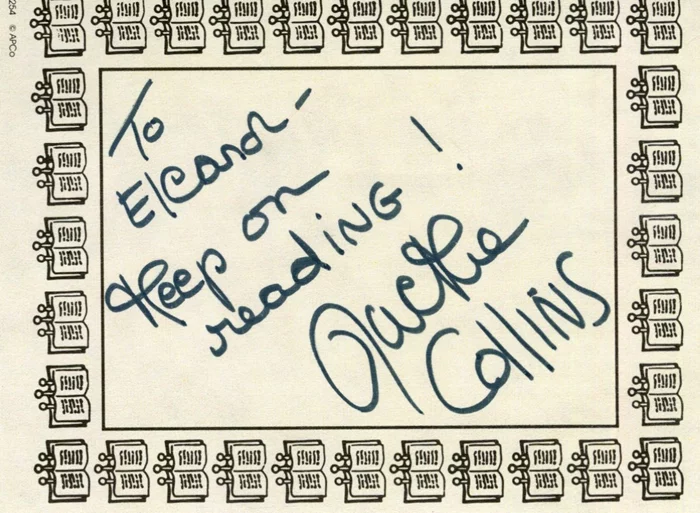 254 © APCo
To
Eleanor -
Keep on
reading!
Jackie
Collins